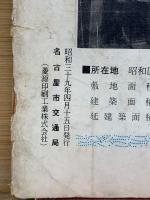 ■所在地　昭和
敷地面
建築面
延建築面
昭和三十九年四月十五日発行
名古屋市交通局
(菱源印刷工業株式会社)